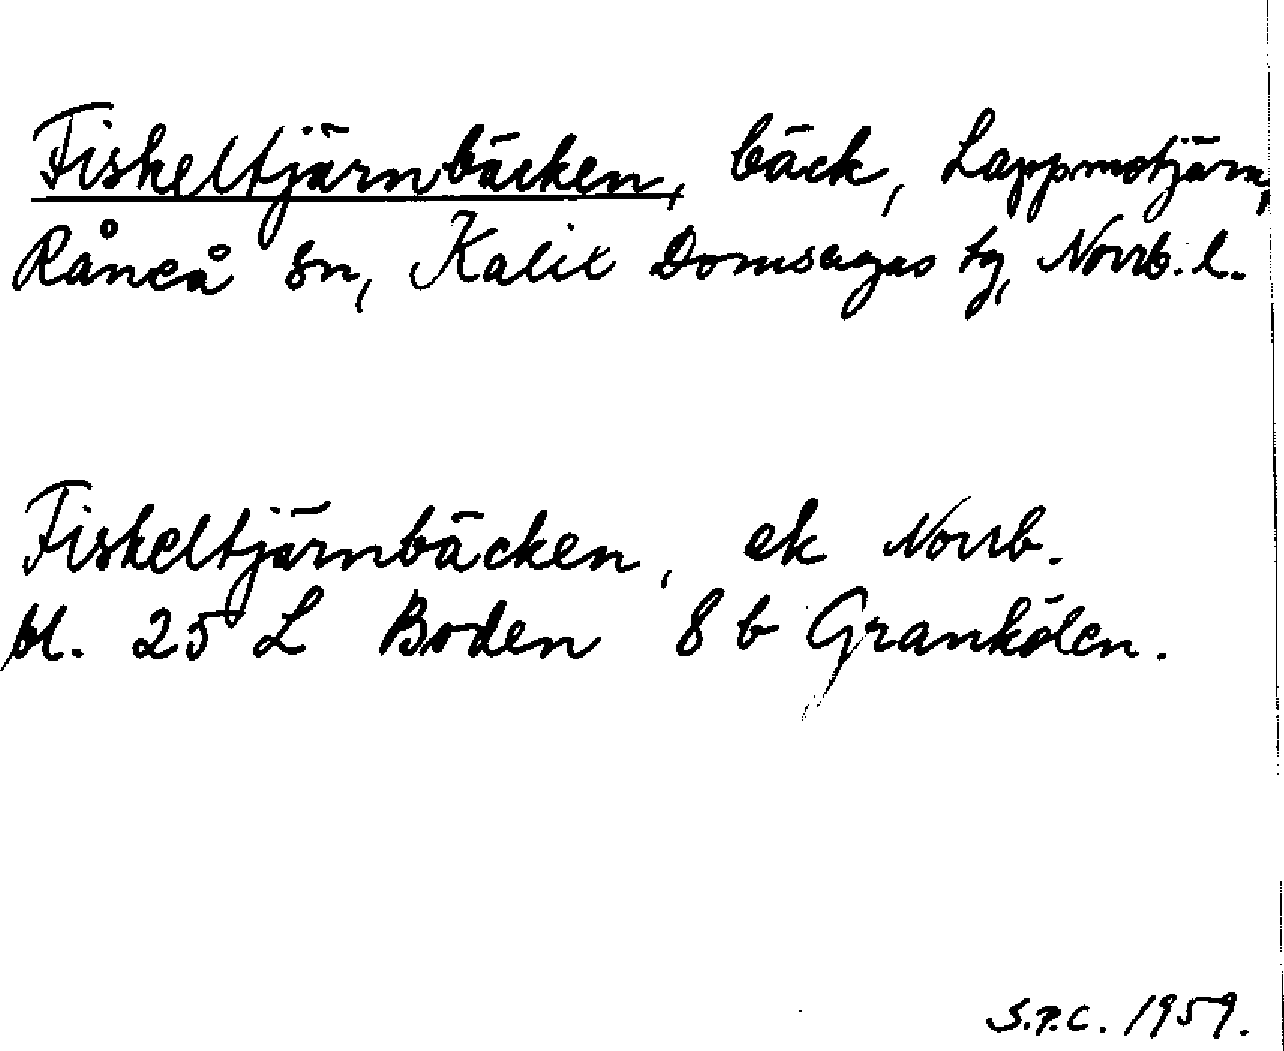 Fiskeltjärnbäcken, bäck, Lappmotjärn,
Råneå sn, Kalix Domsagas tg, Norrb. l.
Fiskeltjärnbäcken, ek Norrb.
bl. 25 L Boden 8 b Grankölen.
S.P.C. 1959.